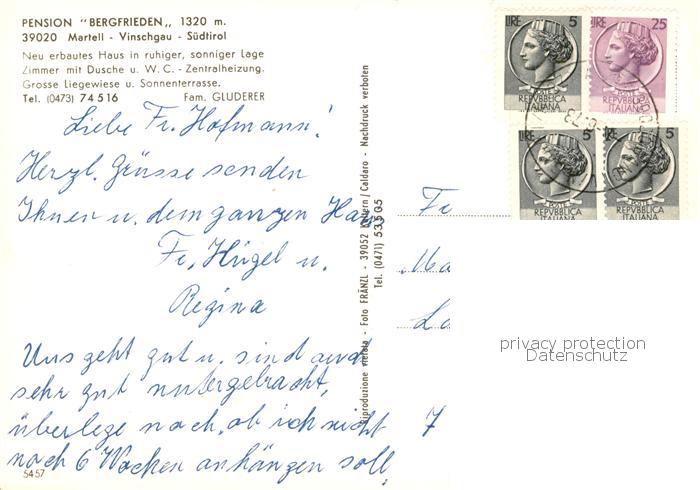 PENSION "BERGFRIEDEN„ 1320 m.
39020 Martell - Vinschgau - Südtirol
Neu erbautes Haus in ruhiger, sonniger Lage
Zimmer mit Dusche u. W. C. - Zentralheizung.
Grosse Liegewiese u. Sonnenterrasse.
Tel. (0473) 74 516 Fam. GLUDERER
Liebe Fr. Hofmann!
Herzl. Grüsse senden
Ihnen u. dem ganzen Haus
Fr. Hügel u.
Regina
Uns geht gut u. sind auch
sehr gut untergebracht,
überlege noch, ob ich nicht
noch 6 Wochen anhängen soll,
5457
Riproduzione vietata - Foto FRÄNZL - 39052 Kaltern / Caldaro - Nachdruck verboten
Tel. (0471) 53505
LIRE 5
POSTE
REPVBBLICA
ITALIANA
LIRE 25
POSTE
REPVBBLICA
ITALIANA
LIRE 5
POSTE
REPVBBLICA
ITALIANA
LIRE 5
POSTE
REPVBBLICA
ITALIANA
Fr
Ma
La
7
privacy protection
Datenschutz